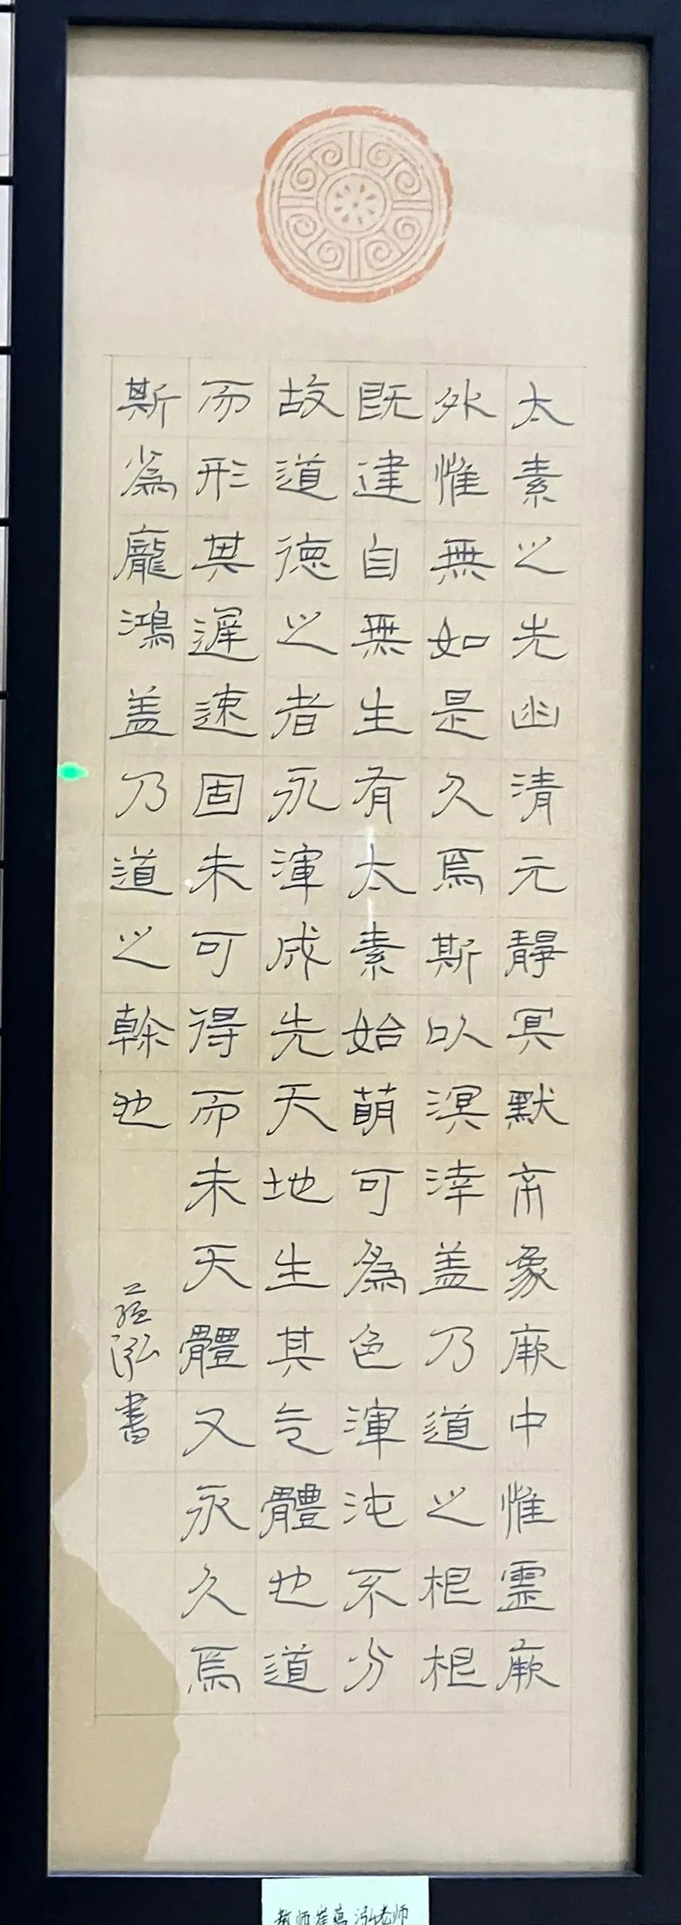 太素之先幽清元靜冥默象厥中惟靈厥
外惟無如是久焉斯以溟涬盖乃道之根根
既建自無生有太素始萌可為色渾沌不分
故道德之者永渾成先天地生其气體也道
而形其遲速固未可得而未天體又永久焉
斯為龐鴻盖乃道之幹也
蕴泓書
教师崔蕴泓老师